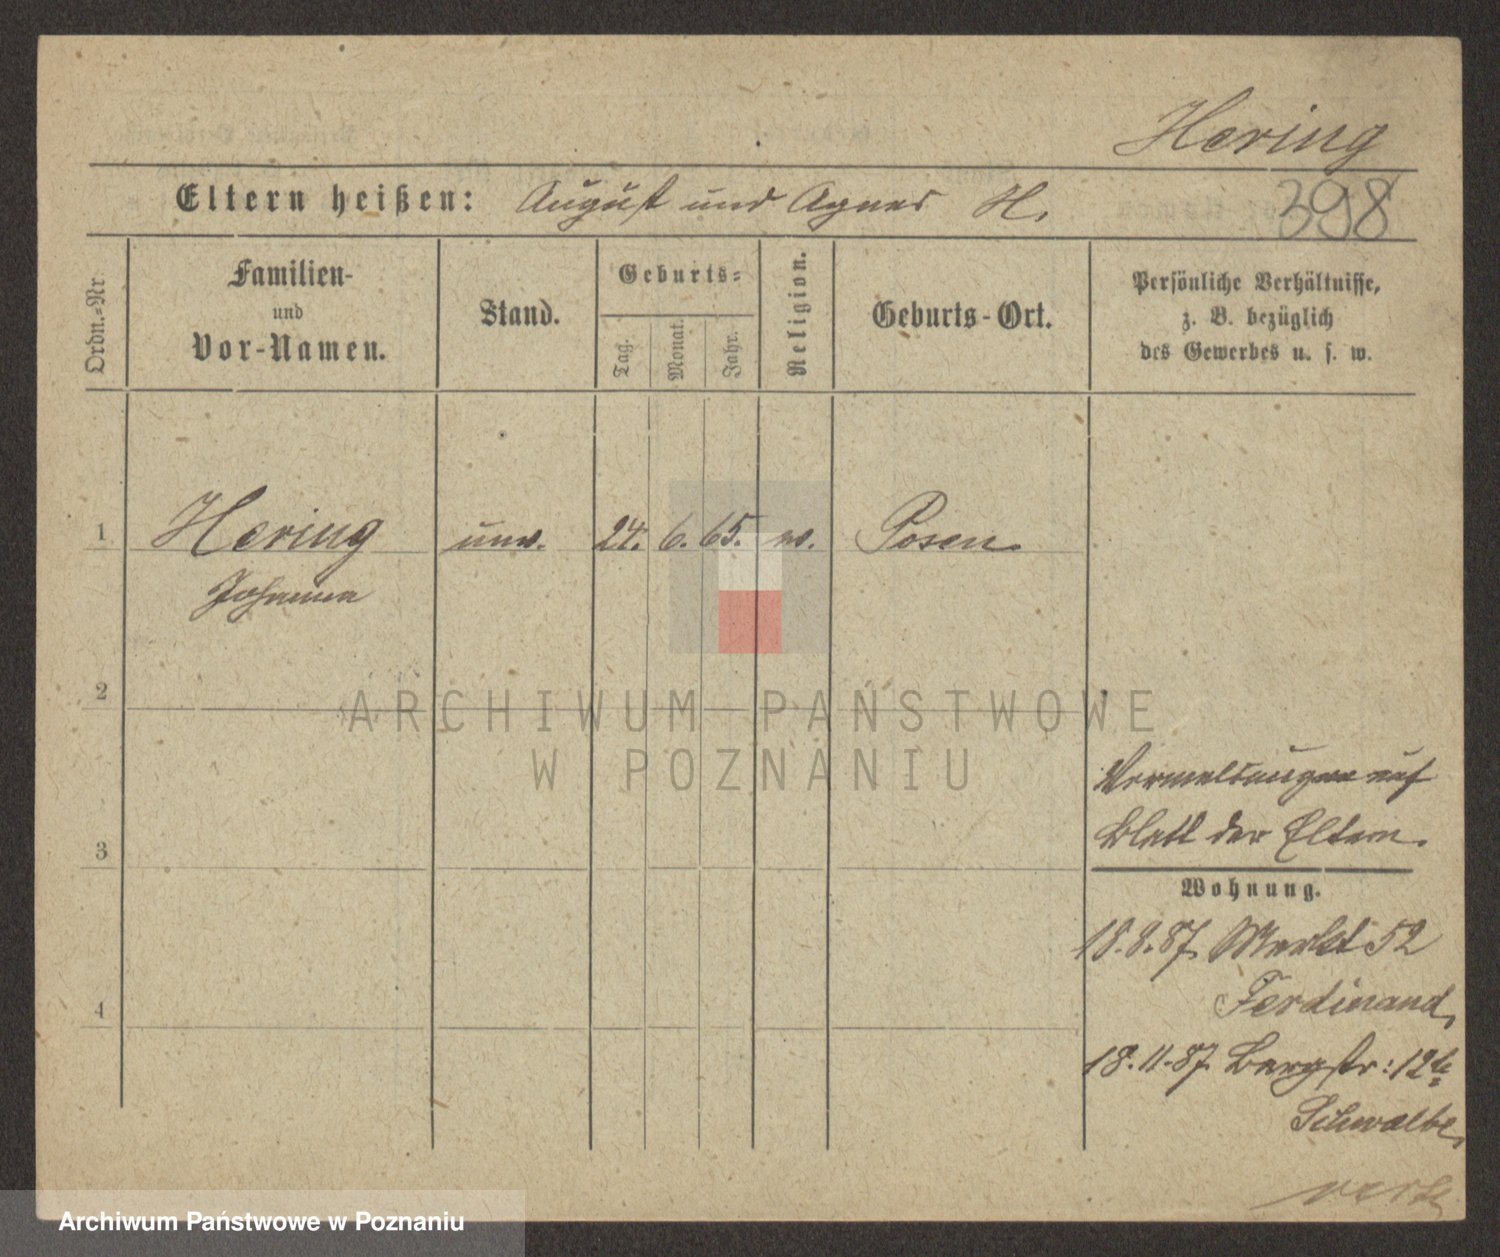 Hering
Eltern heißen: August und Agnes H.
398
Ordn.-Nr.
Familien-
und
Vor-Namen.
Stand.
Geburts-
Tag.
Monat.
Jahr.
Religion.
Geburts-Ort.
Persönliche Verhältnisse,
z. B. bezüglich
des Gewerbes u. s. w.
1 Hering unv. 24. 6. 65. Posen.
Johanna
2
ARCHIWUM PAŃSTWOWE
W POZNANIU
auf
3
Blatt der Eltern.
Wohnung.
18.8.87. Markt 52
Ferdinand,
4
18.11.87. Bergstr: 12b
Schwalbe,
Archiwum Państwowe w Poznaniu